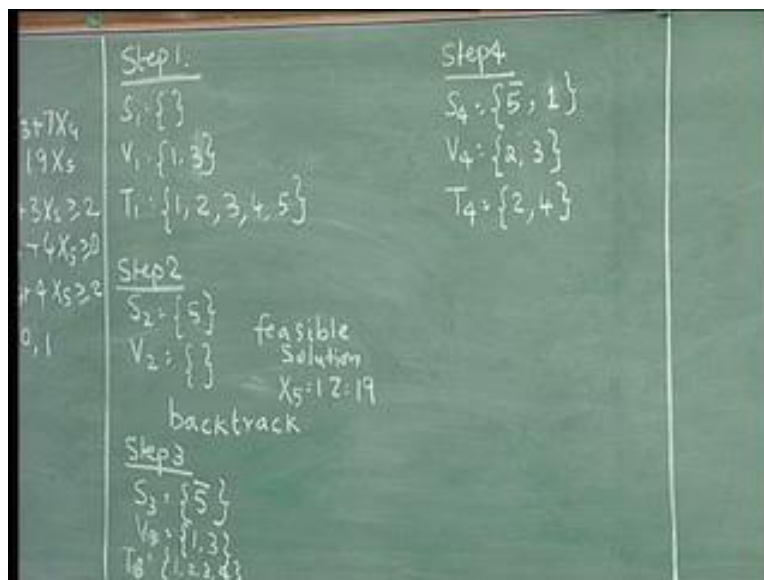 3+7X4
19X5
+3X5≥2
-4X5≥0
+4X5≥2
0,1
Step1.
S1={}
V1={1,3}
T1={1,2,3,4,5}
Step2
S2={5}
V2={}
feasible
Solution
X5=1 Z=19
backtrack
Step3
S3={5̅}
V3={1,3}
T3={1,2,3,4}
Step4
S4={5̅,1}
V4={2,3}
T4={2,4}